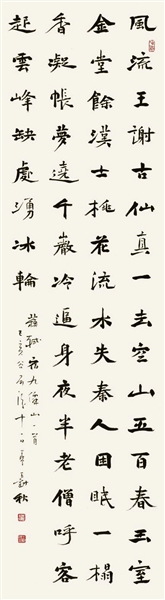 風流王謝古仙真一去空山五百春玉室
金堂餘漢士桃花流水失秦人困眠一榻
香凝帳夢遶千巖冷逼身夜半老僧呼客
起雲峰缺處湧冰輪
蘇軾宿九仙山一首